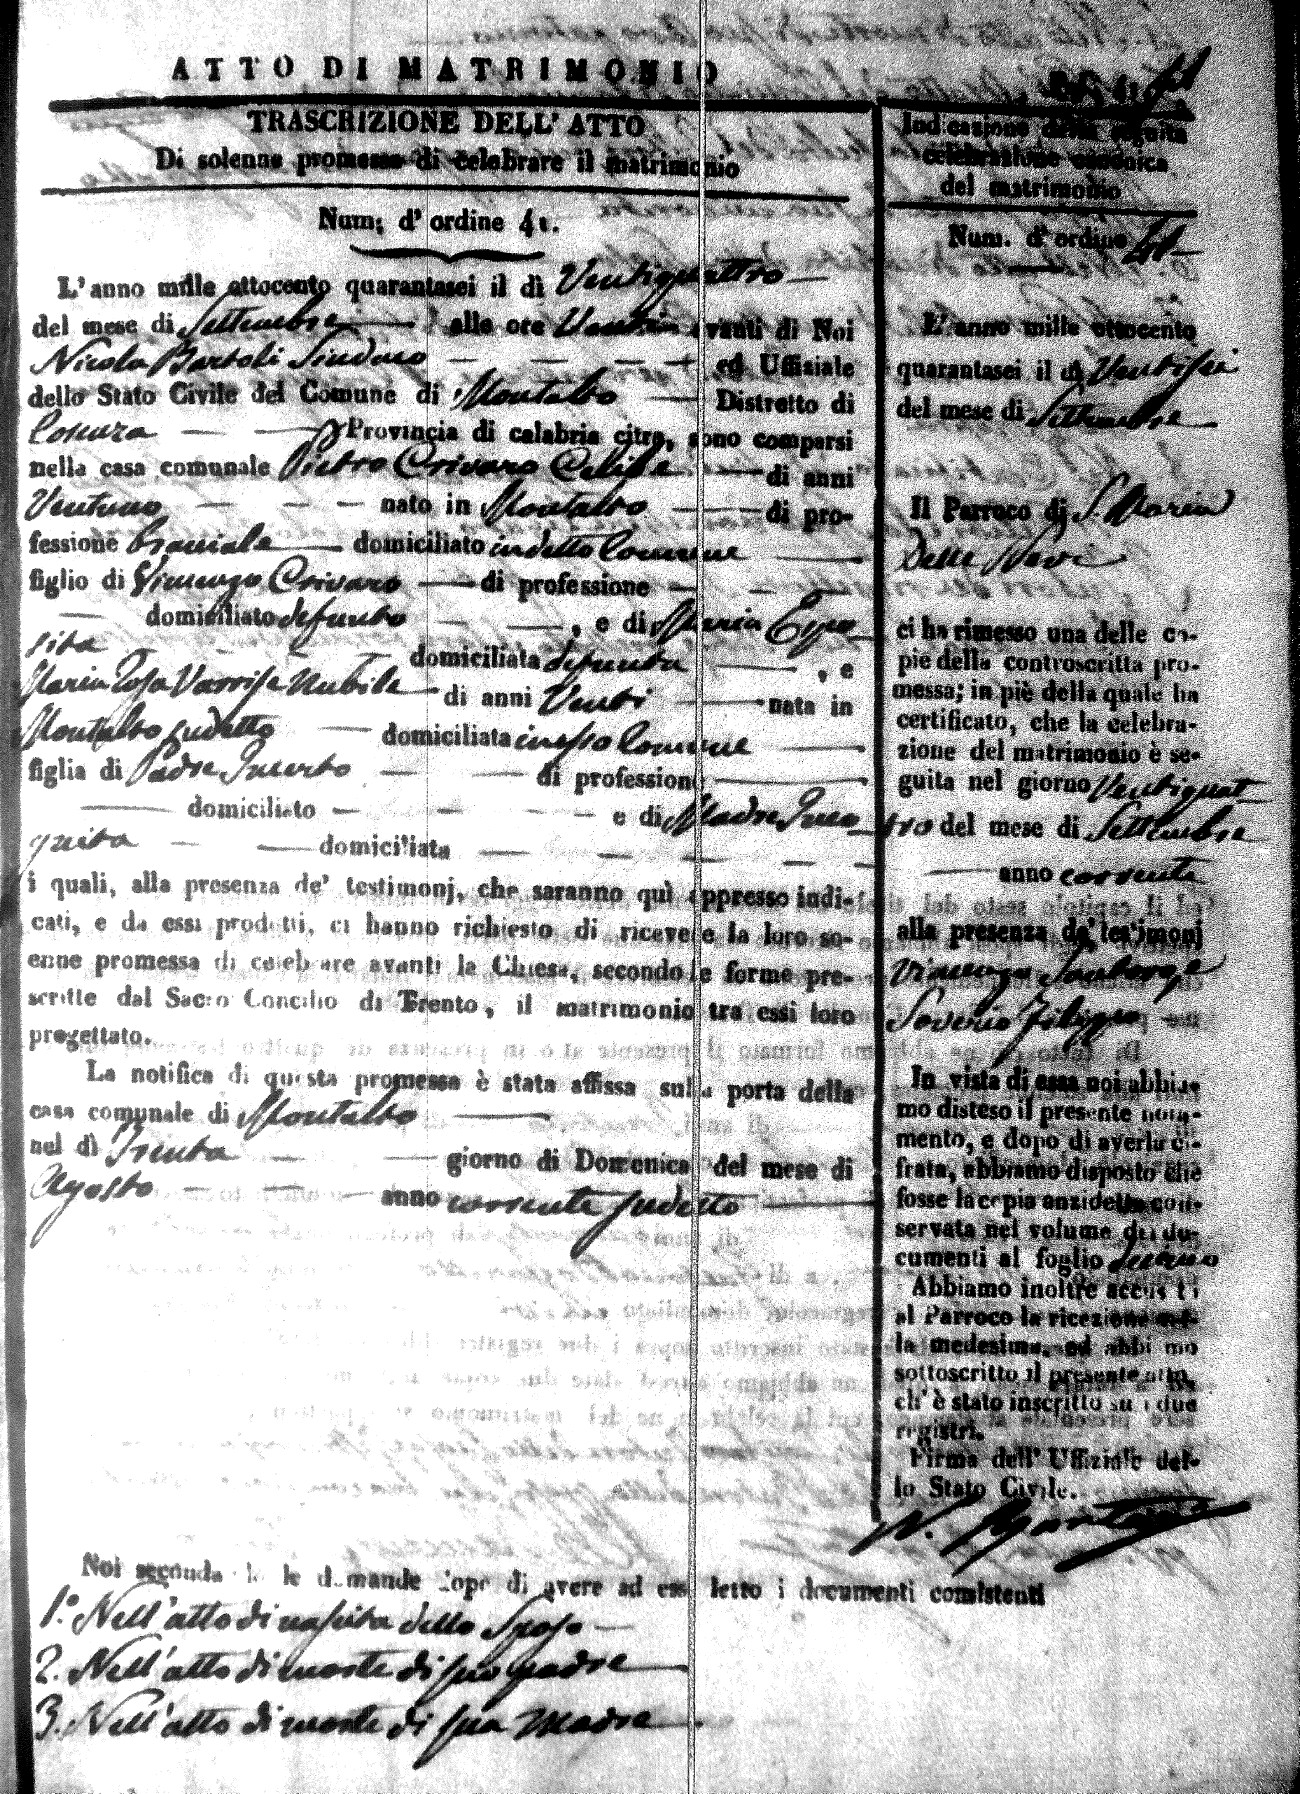 ATTO DI MATRIMONIO
TRASCRIZIONE DELL' ATTO
Di solenne promessa di celebrare il matrimonio
Num: d' ordine 41.
L'anno mille attocento quarantasei il dì Ventiquattro
del mese di Settembre alle ore Venti avanti di Noi
Nicola Bartoli Sindaco ed Uffiziale
dello Stato Civile del Comune di Montalto Distretto di
Cosenza Provincia di calabria citra, sono comparsi
nella casa comunale Pietro Crivaro Celibe di anni
Ventuno nato in Montalto di pro-
fessione bracciale domiciliato in detto Comune
figlio di Vincenzo Crivaro di professione
domiciliato defunto , e di Maria Espo
sita domiciliata defunta , e
Maria Rosa Nubile di anni Venti nata in
Montalto sudetto domiciliata in esso Comune
figlia di Padre Incerto di professione
domiciliato e di Madre Inco
gnita domiciliata
i quali, alla presenza de' testimonj, che saranno quì appresso indi-
cati, e da essi prodotti, ci hanno richiesto di ricevere la loro so-
enne promessa di celebrare avanti la Chiesa, secondo le forme pre-
scritte dal Sacro Concilio di Trento, il matrimonio tra essi loro
progettato.
La notifica di questa promessa è stata affissa sulla porta della
casa comunale di Montalto
nel dì Trenta giorno di Domenica del mese di
Agosto anno corrente sudetto
Indicazione della seguita
celebrazione canonica
del matrimonio
Num. d' ordine 41
L'anno mille ottocento
quarantasei il dì Ventisei
del mese di Settembre
Il Parroco di S. Maria
Della Neve
ci ha rimesso una delle co-
pie della controscritta pro-
messa; in piè della quale ha
certificato, che la celebra-
zione del matrimonio è se-
guita nel giorno Ventiquat-
tro del mese di Settembre
anno corrente
alla presenza de' testimonj
Vincenzo
Saverio Filippo
In vista di essa noi abbia-
mo disteso il presente nota-
mento, e dopo di averla ci-
frata, abbiamo disposto che
fosse la copia anzidetta con-
servata nel volume dei do-
cumenti al foglio
Abbiamo inoltre accusati
al Parroco la ricezione del-
la medesima, ed abbiamo
sottoscritto il presente atto,
ch' è stato inscritto su i due
registri.
Firma dell' Uffiziale del-
lo Stato Civile.
N.
Noi secondando le domande dopo di avere ad essi letto i documenti consistenti
1.° Nell'atto di nascita dello Sposo
2. Nell'atto di morte di suo padre
3. Nell'atto di morte di sua Madre